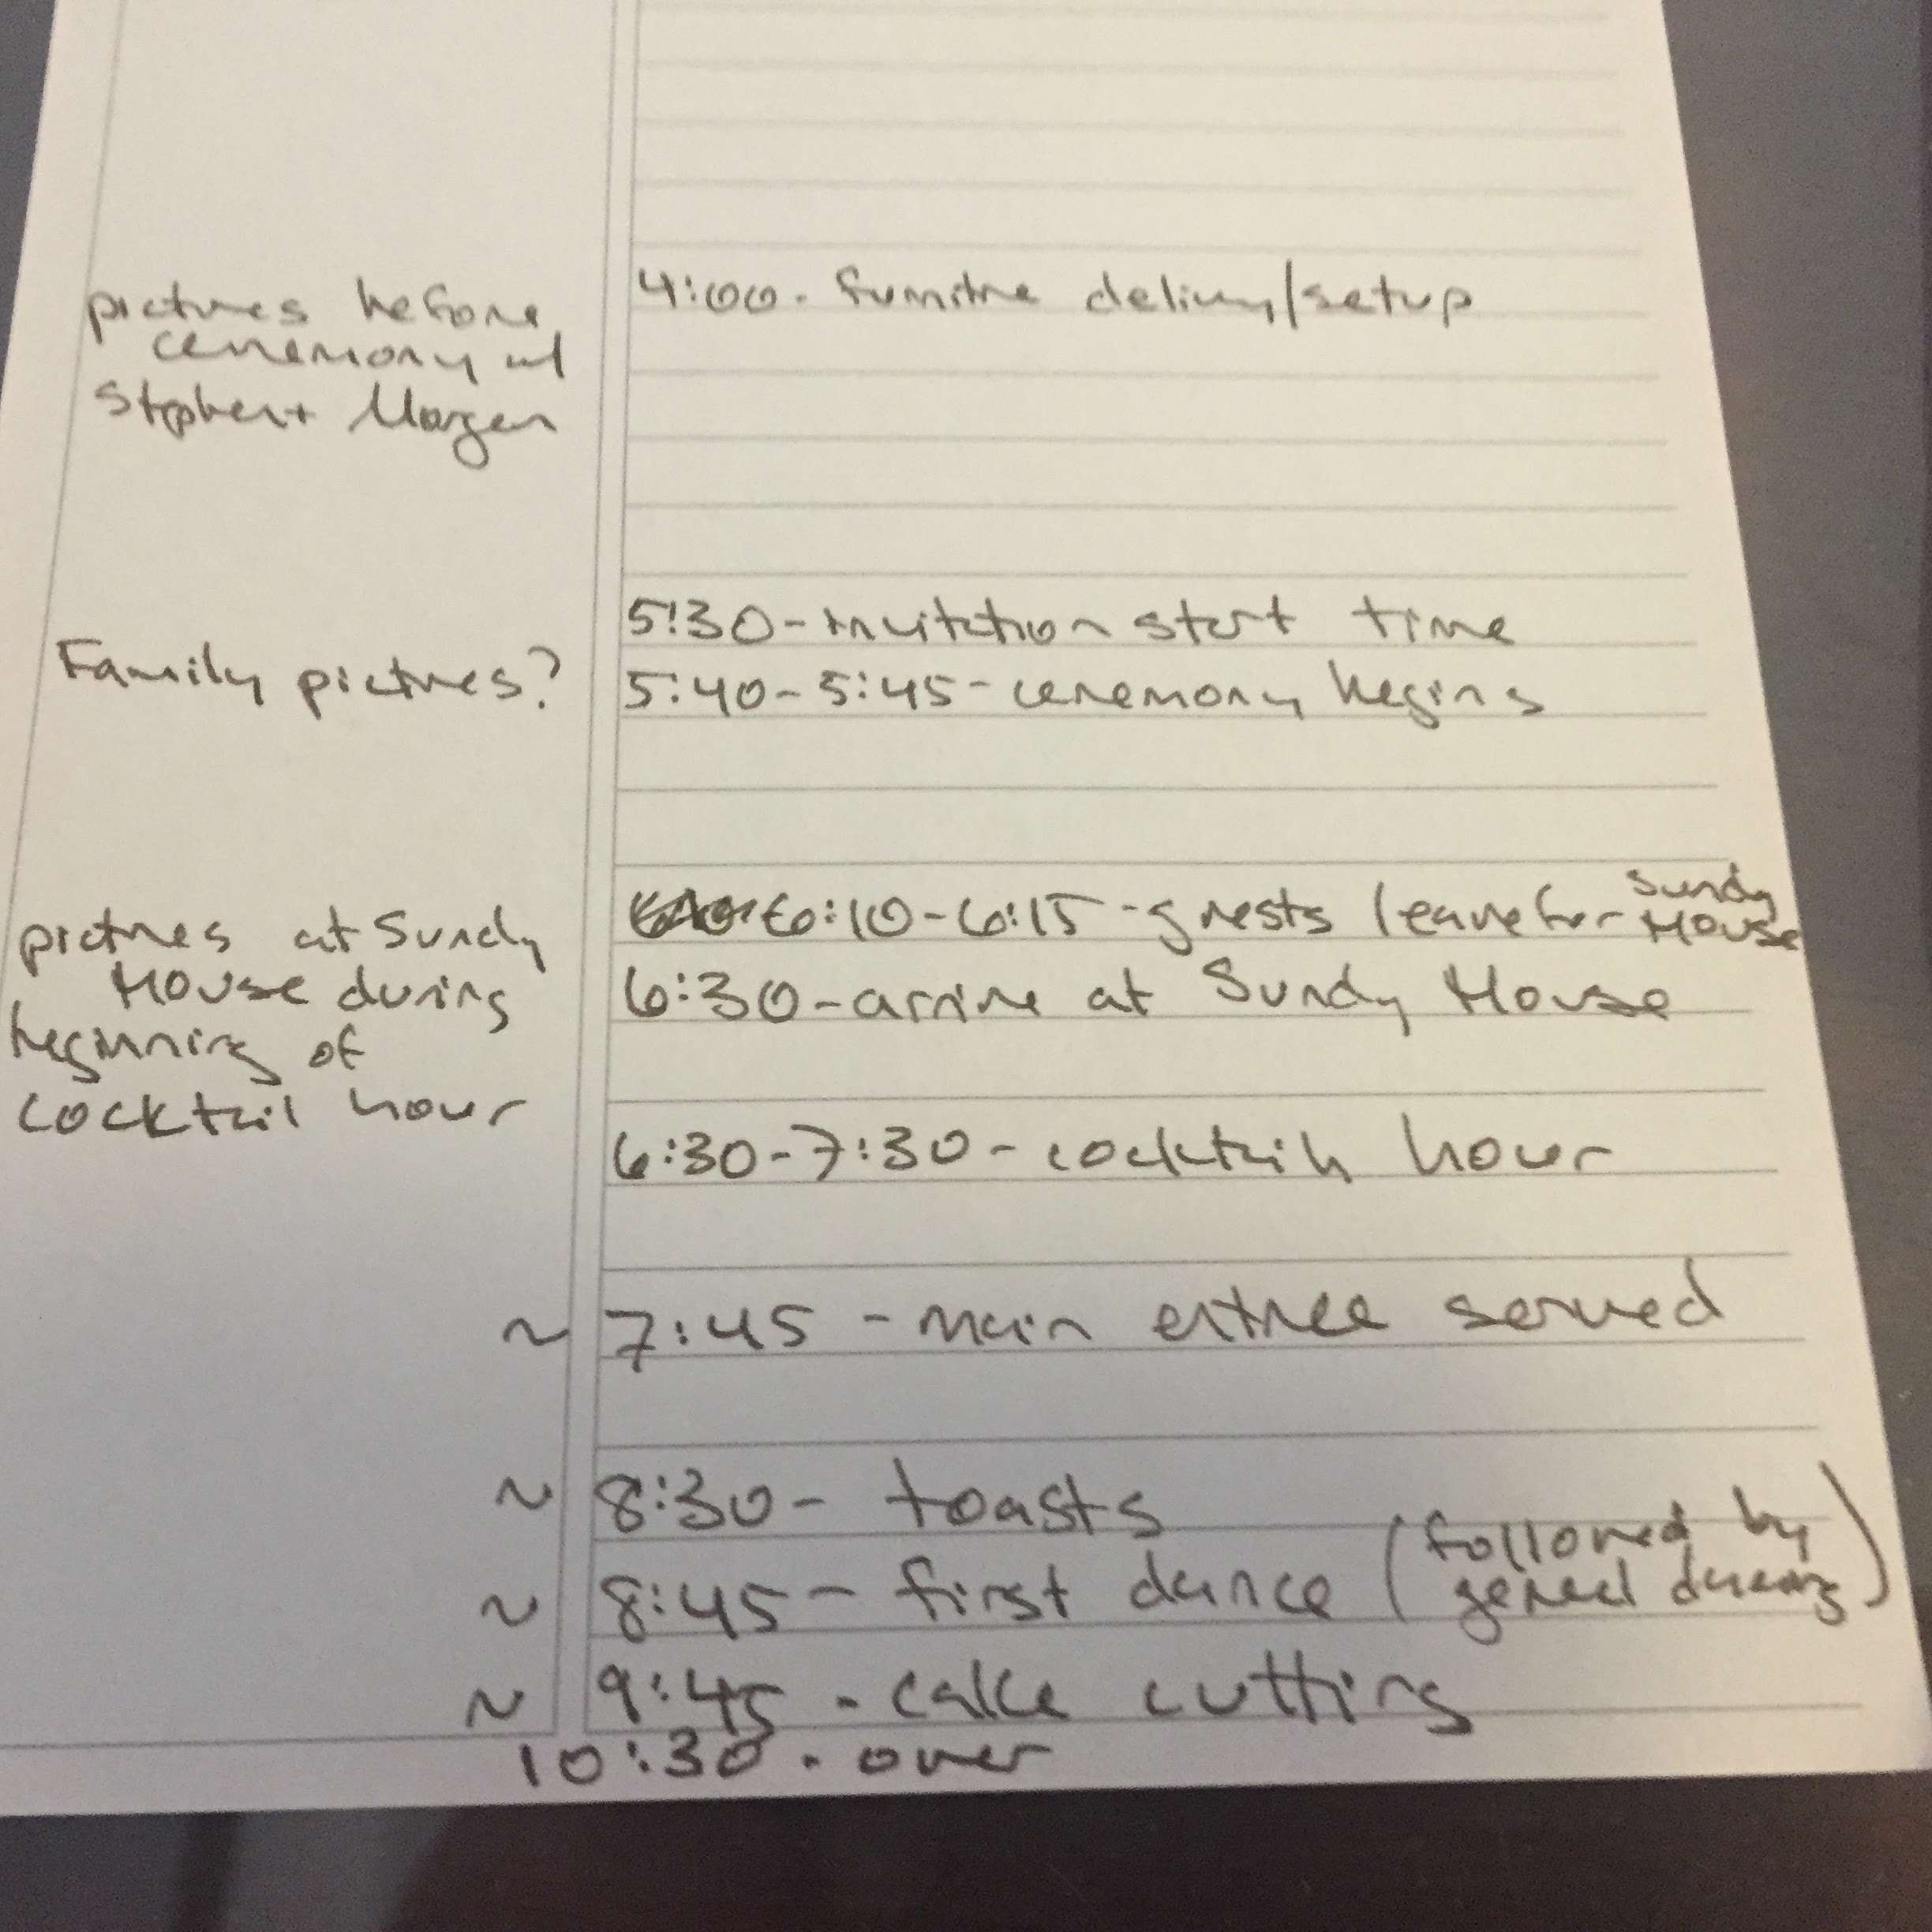 pictures before
ceremony w/
Stephen + Morgan
4:00 - furniture delivery/setup
5:30 - invitation start time
Family pictures?
5:40 - 5:45 - ceremony begins
6:10 - 6:15 - guests leave for Sundy House
pictures at Sundy
House during
beginning of
cocktail hour
6:30 - arrive at Sundy House
6:30 - 7:30 - cocktail hour
~ 7:45 - main entree served
~ 8:30 - toasts
~ 8:45 - first dance (followed by general dancing)
~ 9:45 - cake cutting
10:30 - over